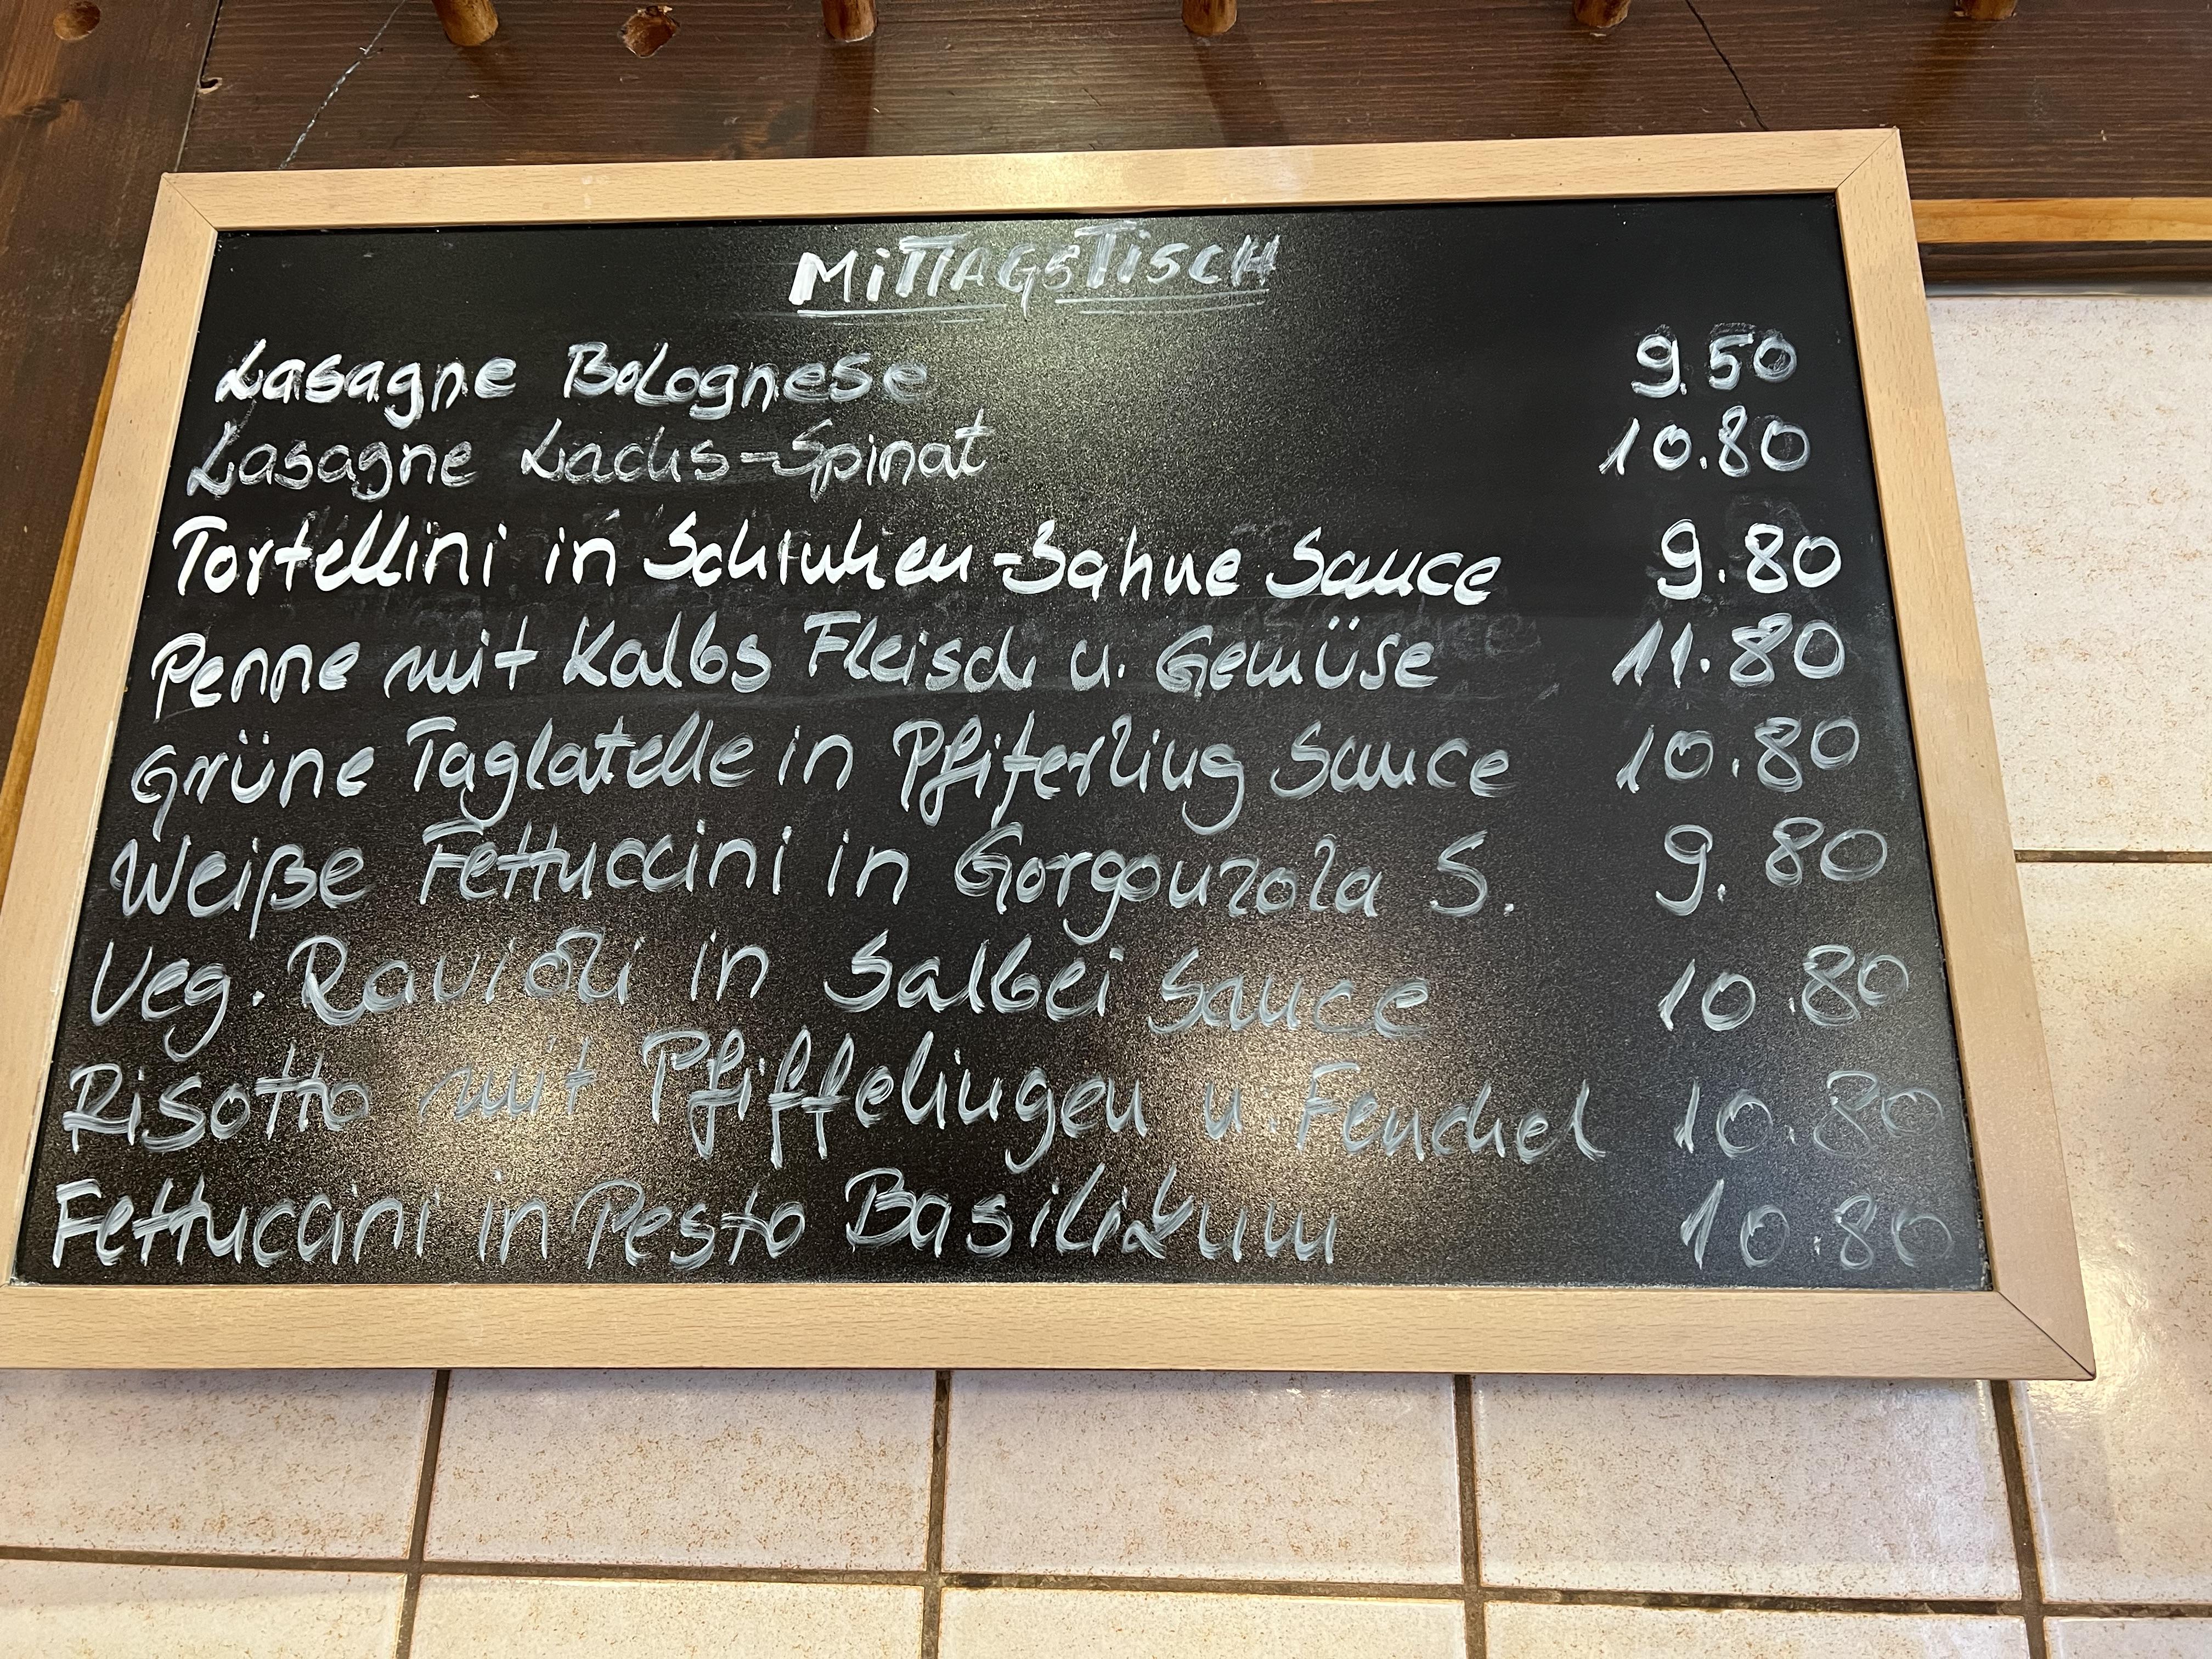 MiTTAGSTiSCH
Lasagne Bolognese 9.50
Lasagne Lachs-Spinat 10.80
Tortellini in Schinken-Sahne Sauce 9.80
Penne mit Kalbs Fleisch u. Gemüse 11.80
Grüne Taglatelle in Pfiferling Sauce 10.80
Weiße Fettuccini in Gorgonzola S. 9.80
Veg. Ravioli in Salbei Sauce 10.80
Risotto mit Pfiffelingen u. Fenchel 10.80
Fettuccini in Pesto Basilikum 10.80